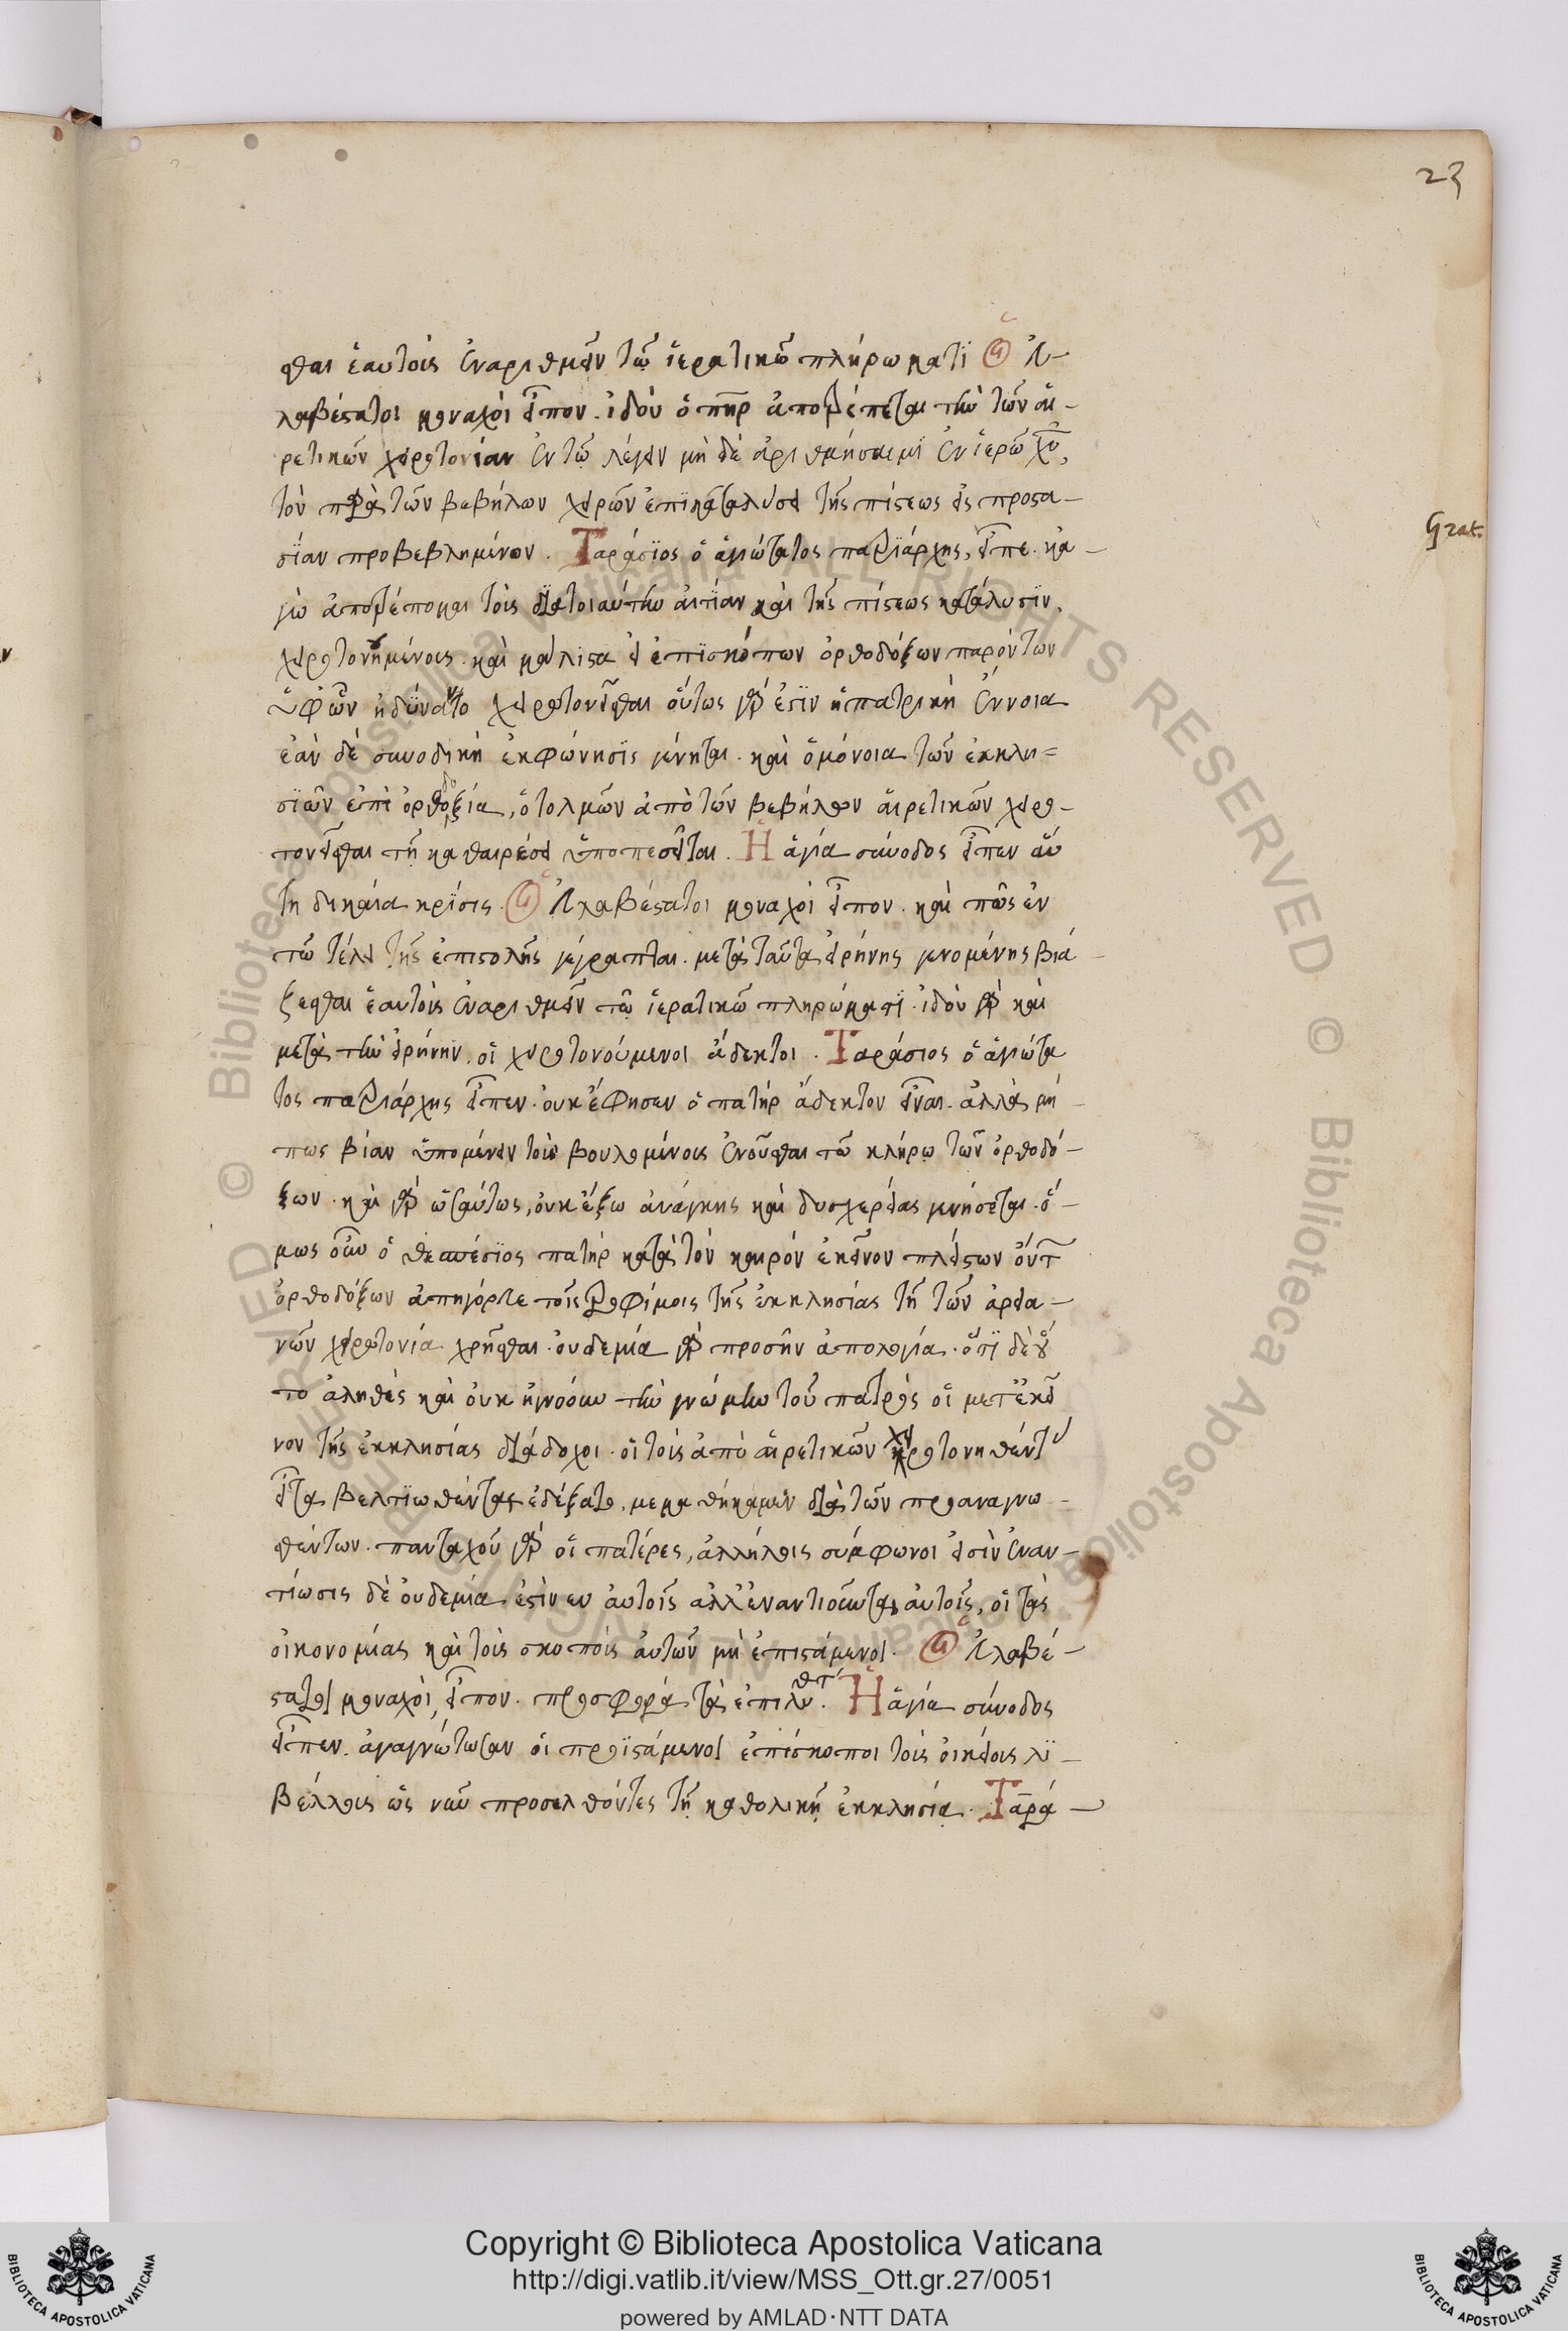 23
σθαι ἑαυτοὺς ἐναριθμεῖν τῷ ἱερατικῷ πληρώματι Οἱ εὐ-
λαβέστατοι μοναχοὶ εἶπον. ἰδοὺ ὁ πηρ ἀποτρέπεται τὴν τῶν αἱ-
ρετικῶν χειροτονίαν ἐν τῷ λέγειν μὴ δὲ ἀριθμήσαιμι ἐν ἱερῶ χυ,
τὸν παρὰ τῶν βεβήλων χειρῶν ἐπὶ καταλύσει τῆς πίστεως εἰς προστα-
σίαν προβεβλημένον. Ταράσιος ὁ ἁγιώτατος πατριάρχης, εἶπε. κα-
Grat.
γὼ ἀποτρέπομαι τοὺς διὰ τοιαύτην αἰτίαν καὶ τῆς πίστεως κατάλυσιν,
χειροτονουμένους. καὶ μάλιστα εἰ ἐπισκόπων ὀρθοδόξων παρόντων
ὑφ' ὧν ἠδύναντο χειροτονεῖσθαι οὕτως γάρ ἐστιν ἡ πατρικὴ ἔννοια
ἐὰν δὲ συνοδικὴ ἐκφώνησις γένηται. καὶ ὁμόνοια τῶν ἐκκλη=
σιῶν ἐπὶ ὀρθοδοξία, ὁ τολμῶν ἀπὸ τῶν βεβήλων αἱρετικῶν χειρο-
τονεῖσθαι τῇ καθαιρέσει ὑποπεσεῖται. Ἡ ἁγία σύνοδος εἶπεν αὕ
τη δικαία κρίσις. Οἱ εὐλαβέστατοι μοναχοὶ εἶπον. καὶ πῶς ἐν
τῷ τέλει τῆς ἐπιστολῆς γέγραπται. μετὰ ταῦτα εἰρήνης γενομένης βιά
ζεσθαι ἑαυτοὺς ἐναριθμεῖν τῷ ἱερατικῷ πληρώματι. ἰδοὺ γὰρ καὶ
μετὰ τὴν εἰρήνην. οἱ χειροτονούμενοι ἄδεκτοι. Ταράσιος ὁ ἁγιώτα
τος πατριάρχης εἶπεν. οὐκ ἔφησεν ὁ πατὴρ ἄδεκτον εἶναι. ἀλλὰ μή
πως βίαν ὑπομένειν τοὺς βουλομένους ἑνοῦσθαι τῷ κλήρῳ τῶν ὀρθοδό-
ξων. καὶ γὰρ ὡσαύτως, οὐκ ἔξω ἀνάγκης καὶ δυσχερείας γενήσεται. ὅ-
μως οὖν ὁ θεσπέσιος πατὴρ κατὰ τὸν καιρὸν ἐκεῖνον πλείστων ὄντ
ὀρθοδόξων ἀπηγόρευε τοῖς τροφίμοις τῆς ἐκκλησίας τῇ τῶν ἀρεια-
νῶν χειροτονία χρῆσθαι. οὐδεμία γὰρ προσῆν ἀπολογία. ὅτι δὲ τοῦ
το ἀληθὲς καὶ οὐκ ἠγνόουν τὴν γνώμην τοῦ πατρὸς οἱ μετ' ἐκεῖ
νον τῆς ἐκκλησίας διάδοχοι. οἳ τοὺς ἀπὸ αἱρετικῶν χειροτονηθέντ
εἶτα βελτιωθέντας ἐδέξατο, μεμαθήκαμεν διὰ τῶν προαναγνω-
σθέντων. πανταχοῦ γὰρ οἱ πατέρες, ἀλλήλοις σύμφωνοι εἰσὶν ἐναν-
τίωσις δὲ οὐδεμία ἐστὶν ἐν αὐτοῖς ἀλλ' ἐναντιοῦνται αὐτοῖς, οἱ τὰς
οἰκονομίας καὶ τοὺς σκοποὺς αὐτῶν μὴ ἐπιστάμενοι. Οἱ εὐλαβέ-
στατοι μοναχοὶ, εἶπον. προσφορὰ τὰ ἐπιλυθτ. Ἡ ἁγία σύνοδος
εἶπεν. ἀναγνώτωσαν οἱ προϊστάμενοι ἐπίσκοποι τοὺς οἰκείους λι-
βέλλους ὡς νῦν προσελθόντες τῇ καθολικῇ ἐκκλησίᾳ. Ταρά-
Copyright © Biblioteca Apostolica Vaticana
http://digi.vatlib.it/view/MSS_Ott.gr.27/0051
powered by AMLAD·NTT DATA